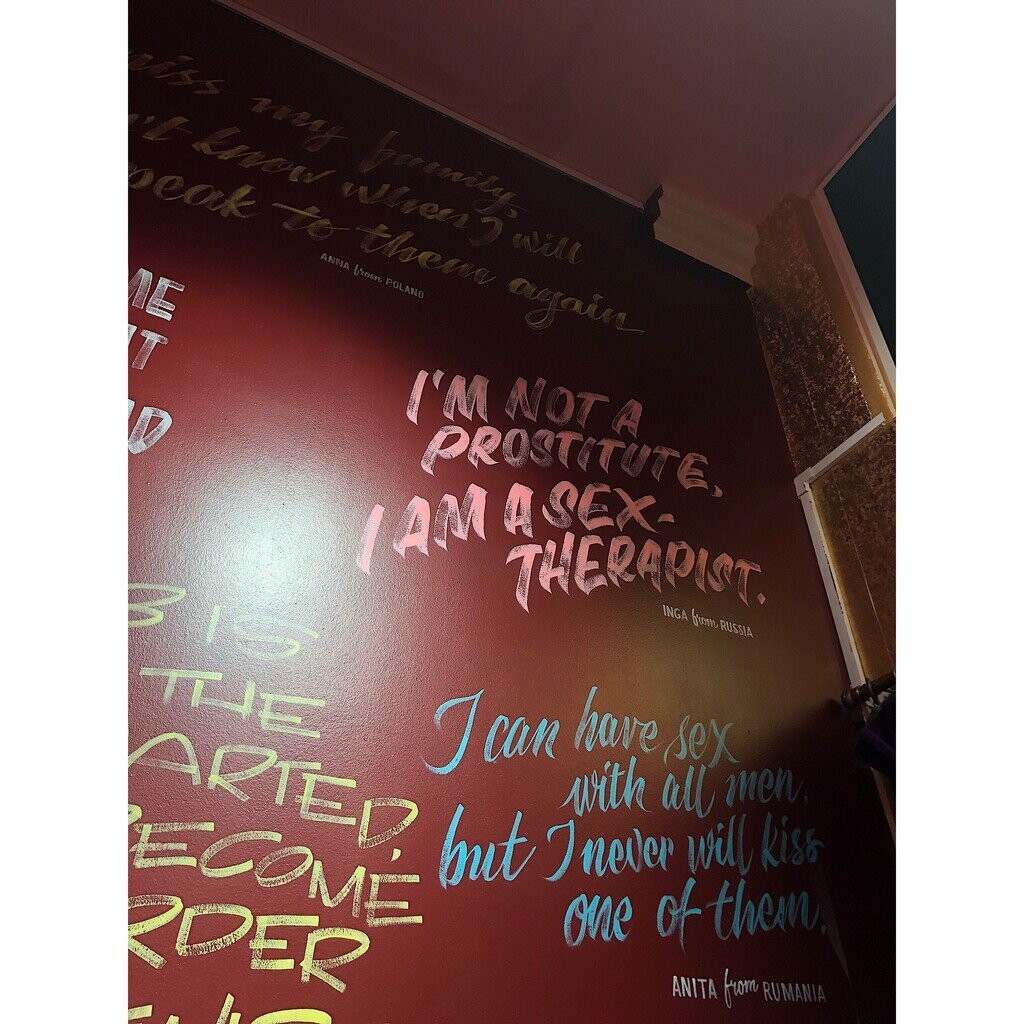 miss my family,
't know when I will
speak to them again
ANNA from POLAND
ME
IT
I'M NOT A
PROSTITUTE,
I AM A SEX-
THERAPIST.
INGA from RUSSIA
IS
THE
ARTED,
BECOME
RDER
I can have sex
with all men,
but I never will kiss
one of them.
ANITA from RUMANIA